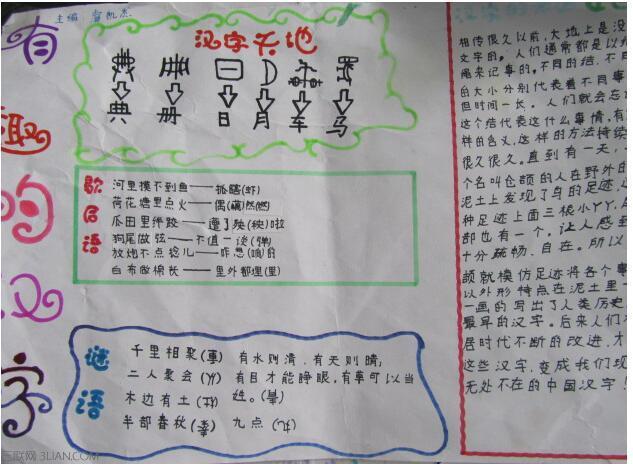 主编
有
趣
的
汉
字
汉字天地
典 册 日 月 车 马
歇
后
语
河里摸不到鱼——抓瞎(虾)
荷花塘里点火——偶(藕)然(燃)
瓜田里绊跤——遭了殃(秧)啦
狗尾做弦——不值一谈(弹)
放炮不点捻儿——咋想(响)的
白布做棉
——里外都理(里)
谜
语
千里相聚(重) 有水则清,有天则晴,
二人聚会 有目才能睁眼,有草可以当
木边有土(杜) 娃。
半部春秋(秦) 九点
相传很久以前,大地上是没
文字的。人们通常都是以
绳来记事的,不同的结,不
的大小分别代表着不同事
但时间一长,人们就会忘
这个结代表这什么事情,有
样的含义,这样的方法持续
很久很久。直到有一天,
个名叫仓颉的人在野外的
泥土上发现了鸟的足迹,
种足迹上面三根小丫丫,
部也有一个,让人感到
十分流畅、自在。所以
颉就模仿足迹将各个事
以外形特点在泥土里一
一画的写出了人类历史
最早的汉字。后来人们
居时代不断的改进,才
这些汉字,变成我们现
无处不在的中国汉字!
互联网 3LIAN.COM